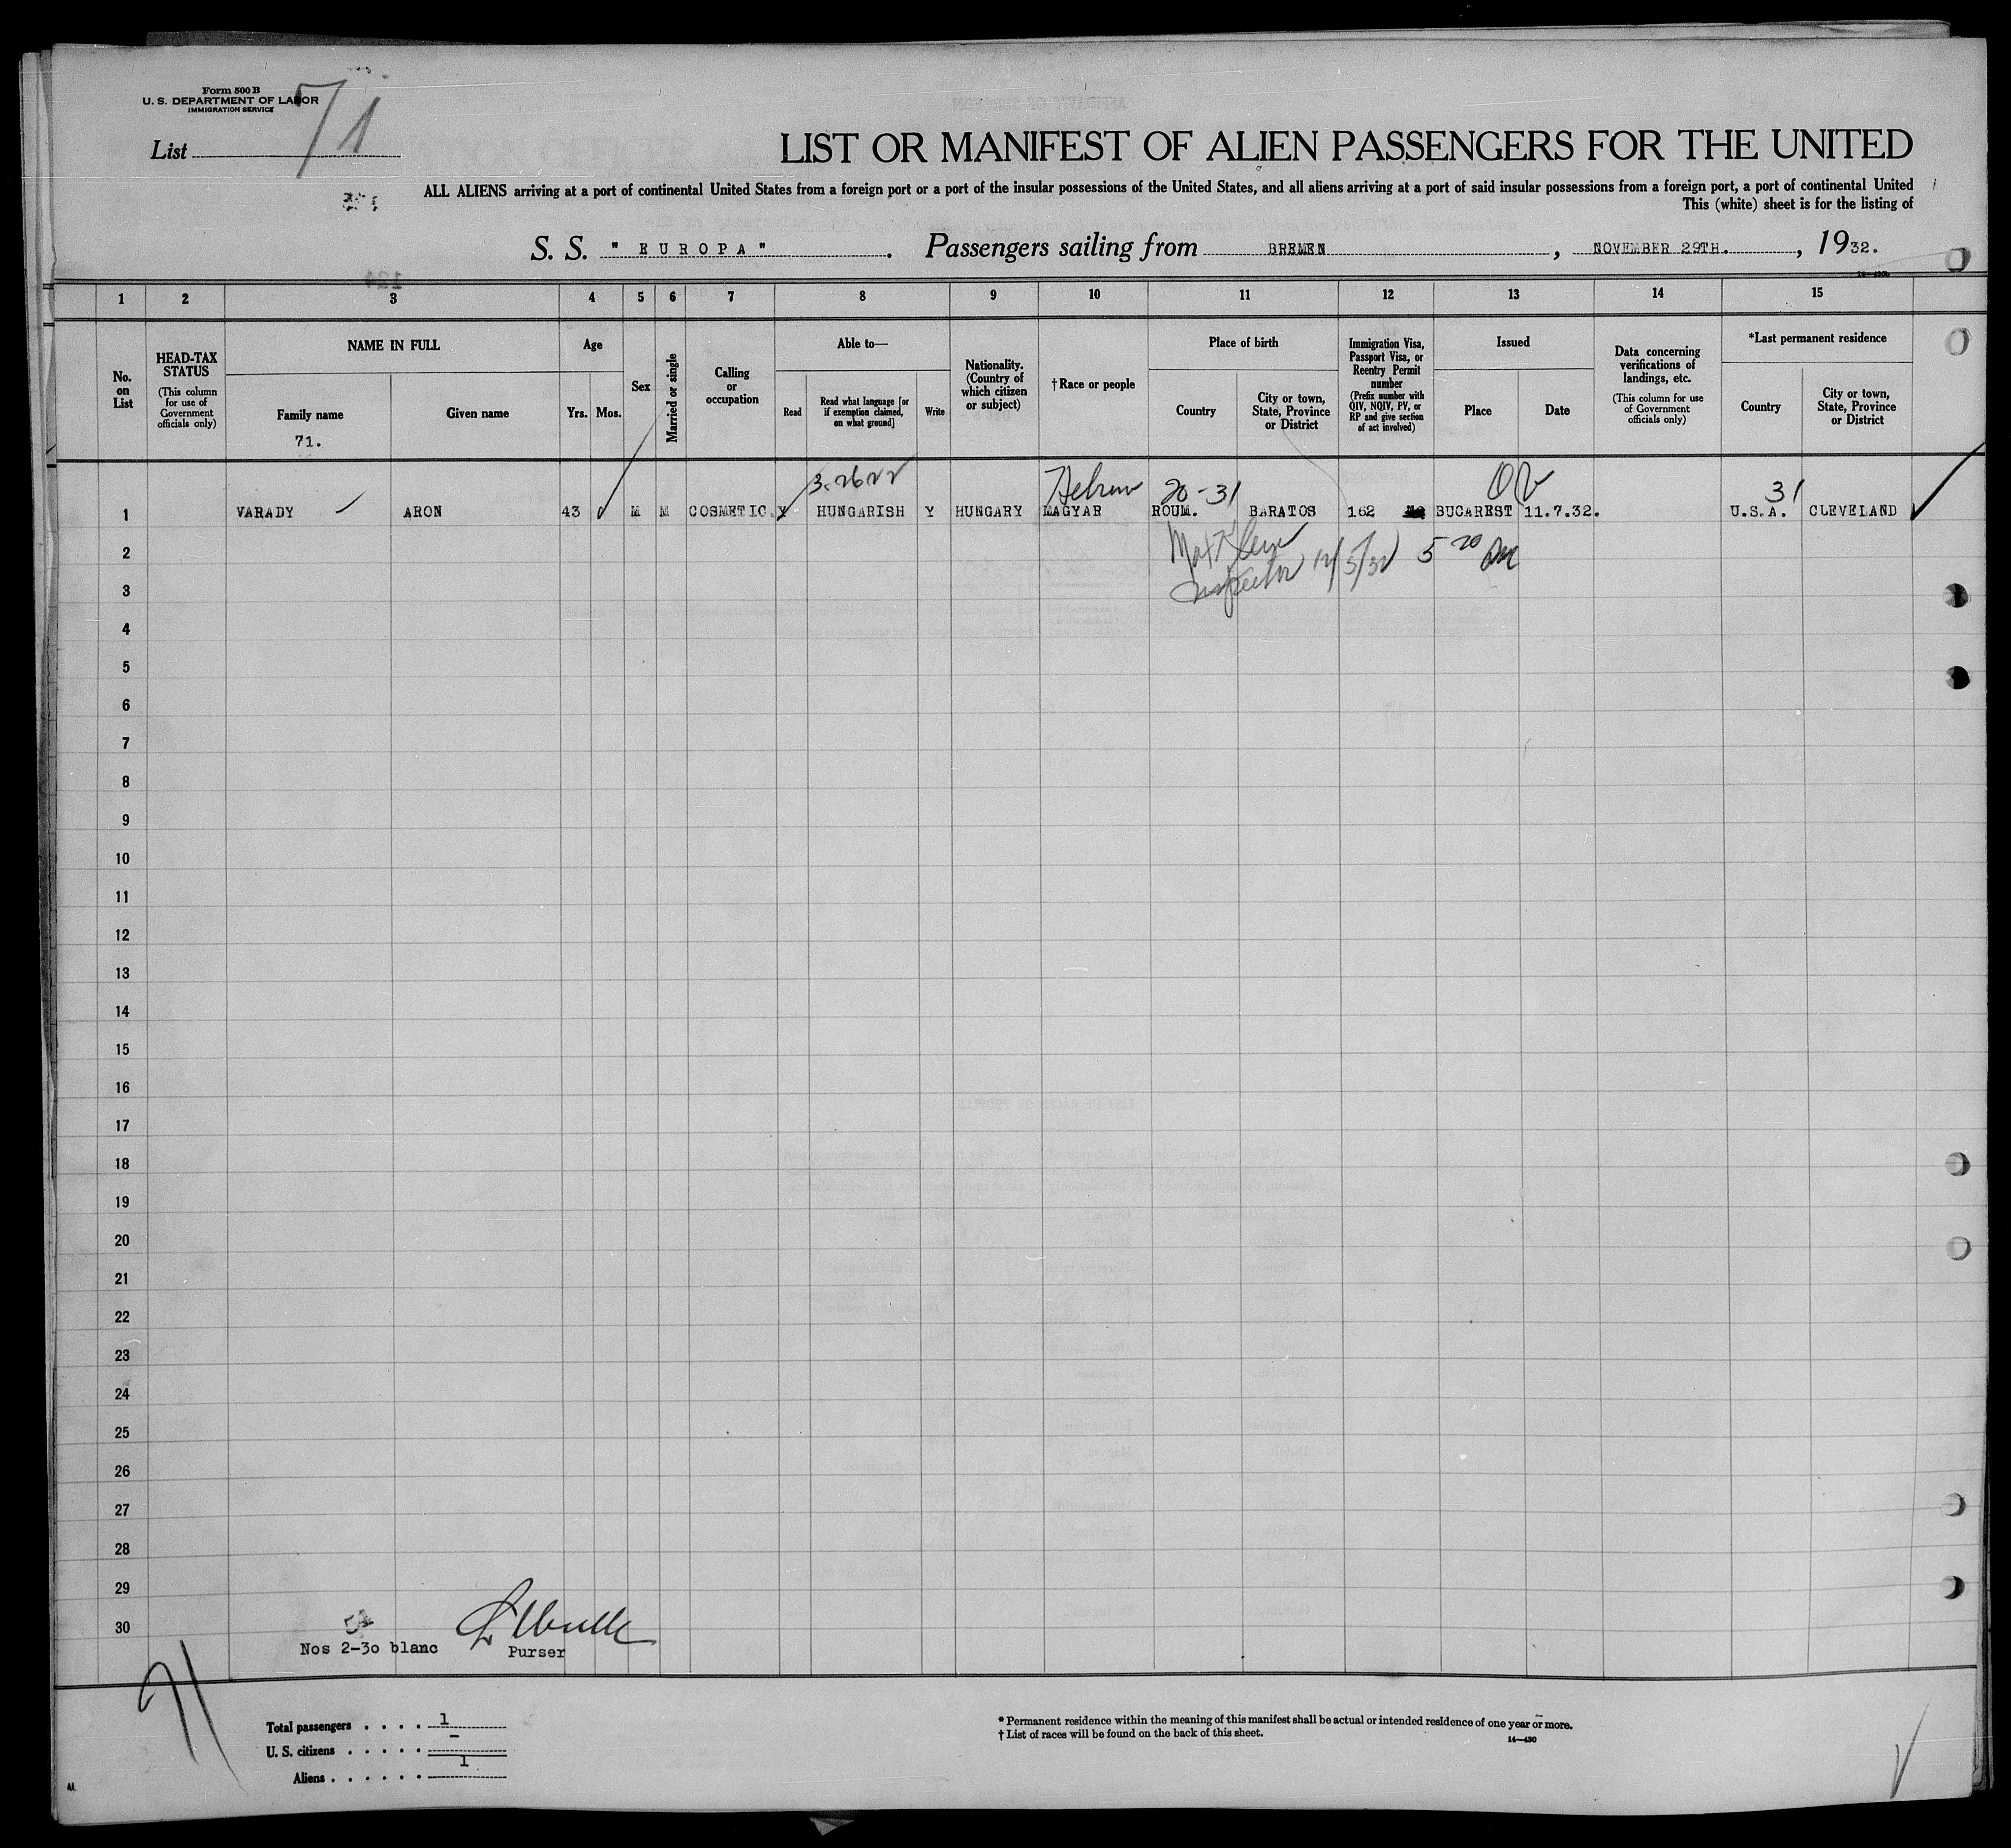 Form 500 B
U. S. DEPARTMENT OF LABOR
IMMIGRATION SERVICE
List 71
LIST OR MANIFEST OF ALIEN PASSENGERS FOR THE UNITED
ALL ALIENS arriving at a port of continental United States from a foreign port or a port of the insular possessions of the United States, and all aliens arriving at a port of said insular possessions from a foreign port, a port of continental United
This (white) sheet is for the listing of
S. S. " E U R O P A " . Passengers sailing from BREMEN , NOVEMBER 29TH. , 1932.
1 2 3 4 5 6 7 8 9 10 11 12 13 14 15
No. on List
HEAD-TAX STATUS
(This column for use of Government officials only)
NAME IN FULL
Family name
71.
Given name
Age
Yrs. Mos.
Sex
Married or single
Calling or occupation
Able to—
Read
Read what language [or if exemption claimed, on what ground]
Write
Nationality. (Country of which citizen or subject)
† Race or people
Place of birth
Country
City or town, State, Province or District
Immigration Visa, Passport Visa, or Reentry Permit number
(Prefix number with QIV, NQIV, PV, or RP and give section of act involved)
Issued
Place
Date
Data concerning verifications of landings, etc.
(This column for use of Government officials only)
*Last permanent residence
Country
City or town, State, Province or District
3.2622 Hebrew 20-31 31
1 VARADY ARON 43 M M COSMETIC. Y HUNGARISH Y HUNGARY MAGYAR ROUM. BARATOS 162 BUCAREST 11.7.32. U.S.A. CLEVELAND
2 Max Klein 5 20
3 Inspector 12/5/32
4
5
6
7
8
9
10
11
12
13
14
15
16
17
18
19
20
21
22
23
24
25
26
27
28
29
30
54
Nos 2-30 blanc
Purser
71
Total passengers . . . . 1
U. S. citizens . . . . . -
Aliens . . . . . . 1
* Permanent residence within the meaning of this manifest shall be actual or intended residence of one year or more.
† List of races will be found on the back of this sheet.
14—430